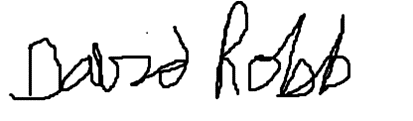 David Robb